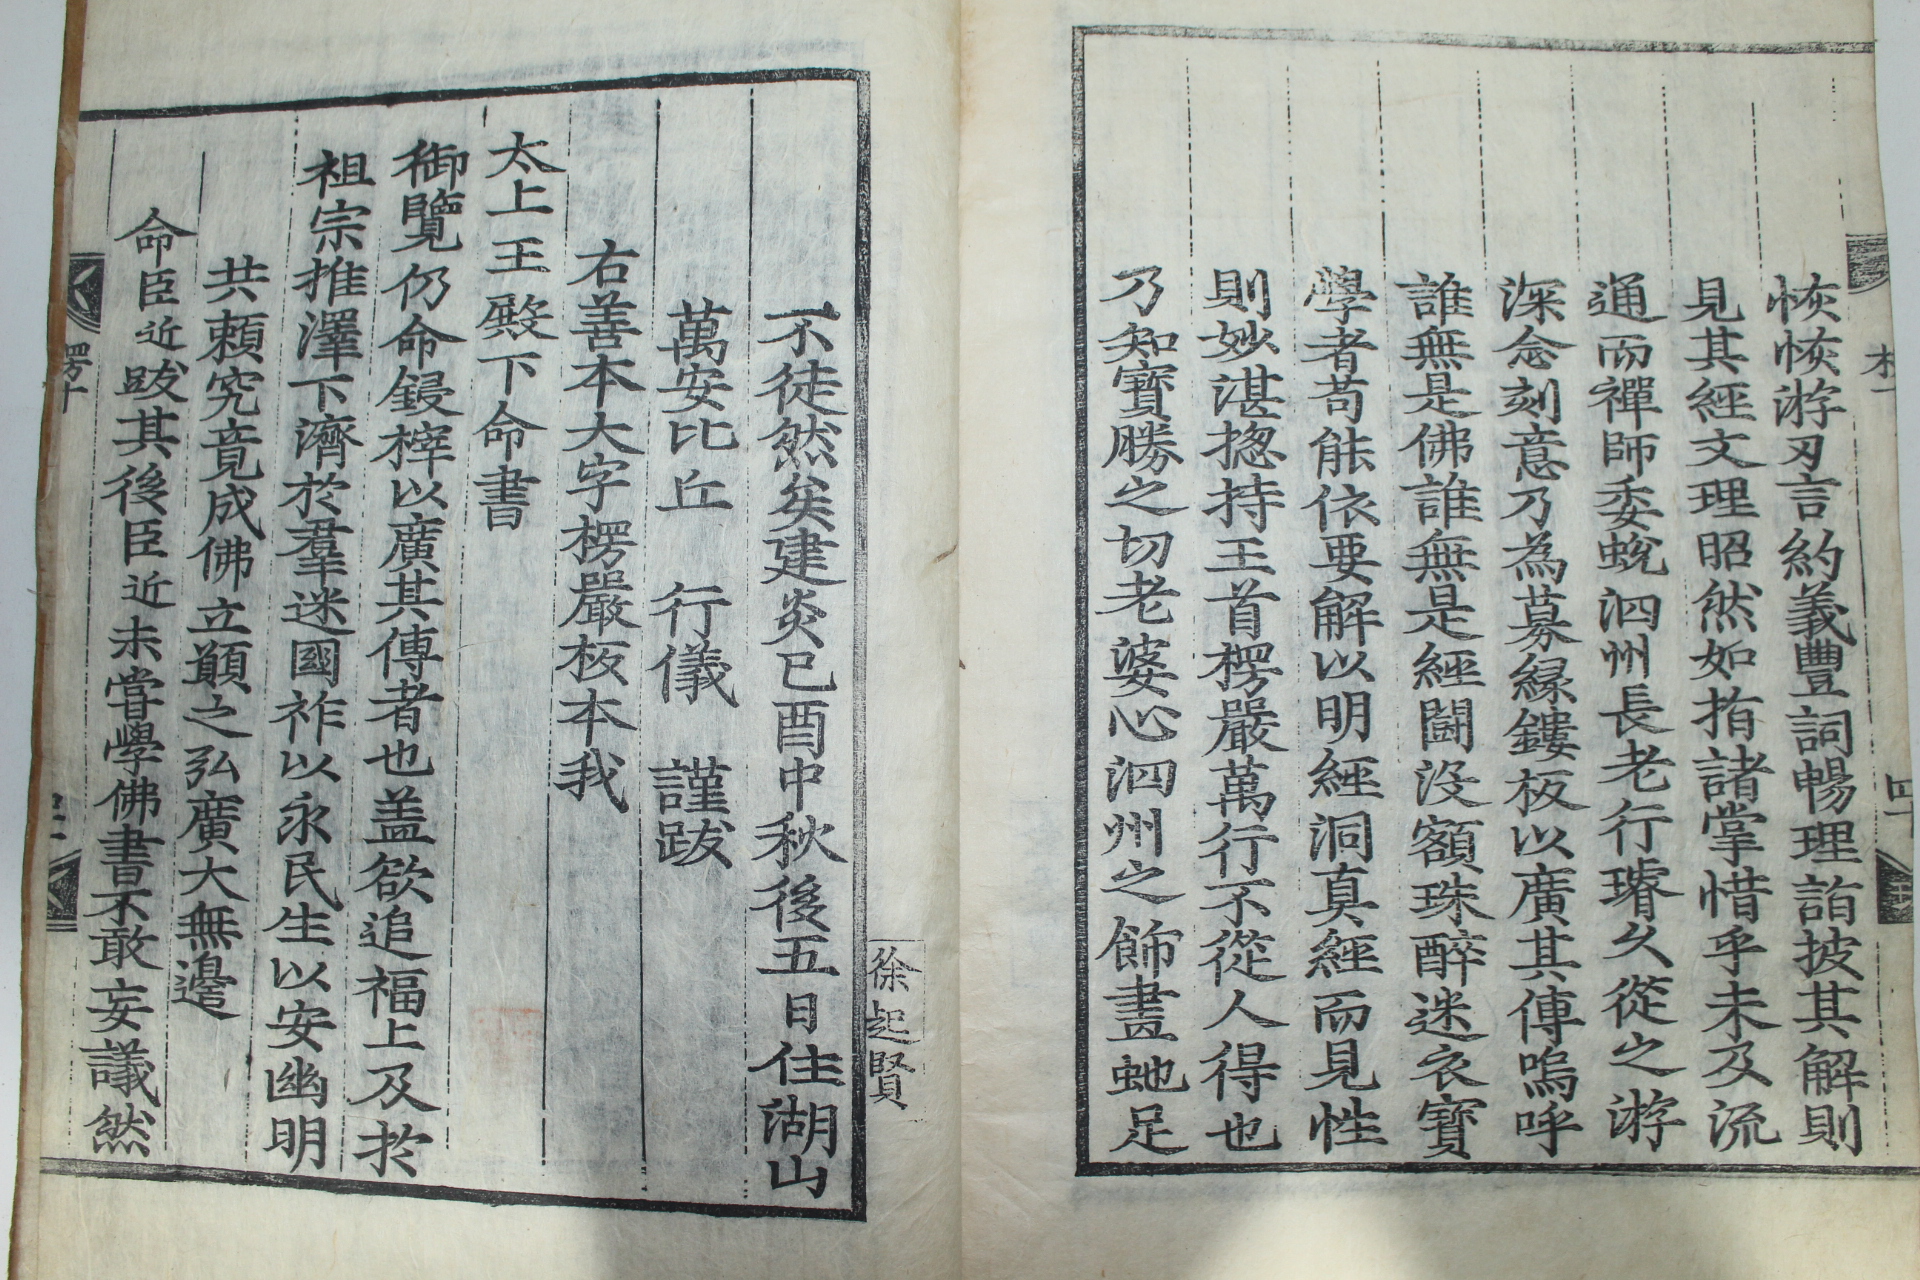 恢恢游刃言約義豊詞暢理詣披其解則
見其經文理昭然如指諸掌惜乎未及流
通而禪師委蛻泗州長老行璿久從之游
深念刻意乃為募縁鏤板以廣其傳嗚呼
誰無是佛誰無是經鬪沒額珠醉迷衣寶
學者苟能依要解以明經洞真經而見性
則妙湛揔持王首楞嚴萬行不從人得也
乃知寶勝之切老婆心泗州之飾畫虵足
不徒然矣建炎己酉中秋後五日住湖山
萬安比丘 行儀 謹跋
右善本大字楞嚴板本我
太上王殿下命書
御覽仍命鋟梓以廣其傳者也盖欲追福上及於
祖宗推澤下濟於羣迷國祚以永民生以安幽明
共賴究竟成佛立顚之弘廣大無邊
命臣近跋其後臣近未甞學佛書不敢妄議然
徐起賢